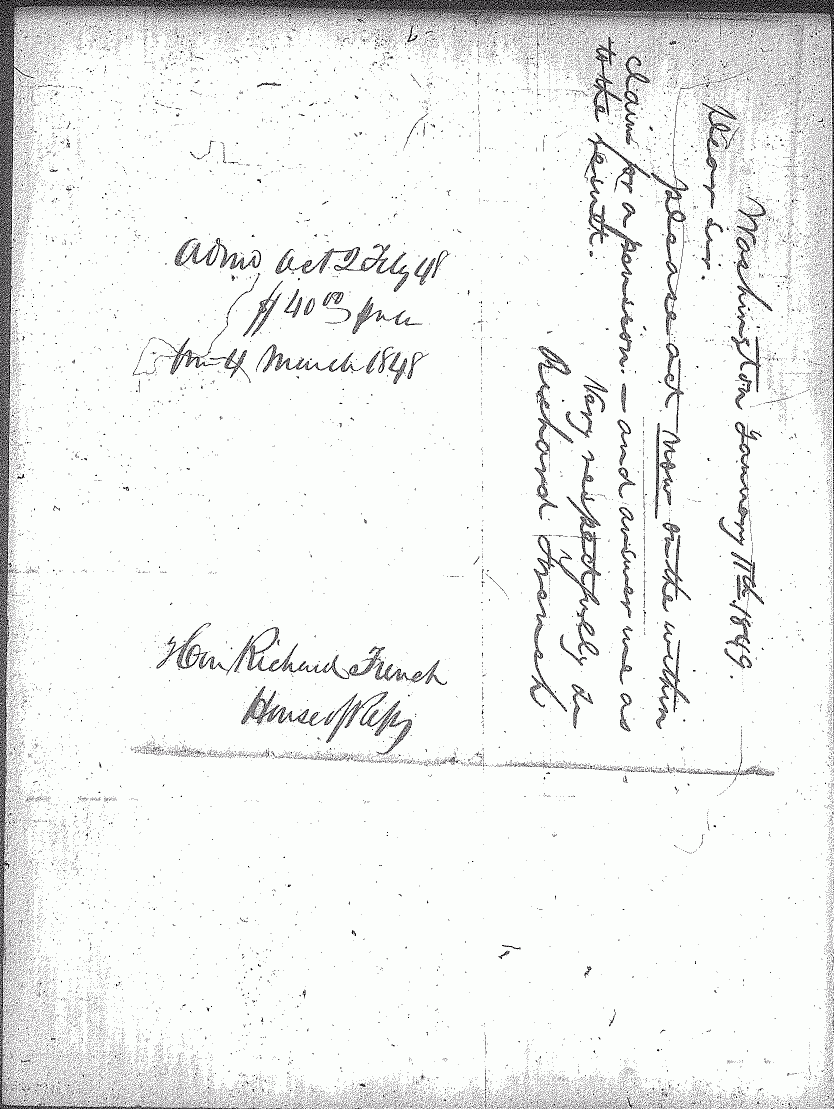 Washington January 11th, 1849.
Dear sir.
please act now on the within
claim for a pension – and answer me as
to the result.
Very respectfully &c
Richard French
admd act 2 Feby 48
$40 00 pr an
from 4 March 1848
Hon Richard French
House of Reps